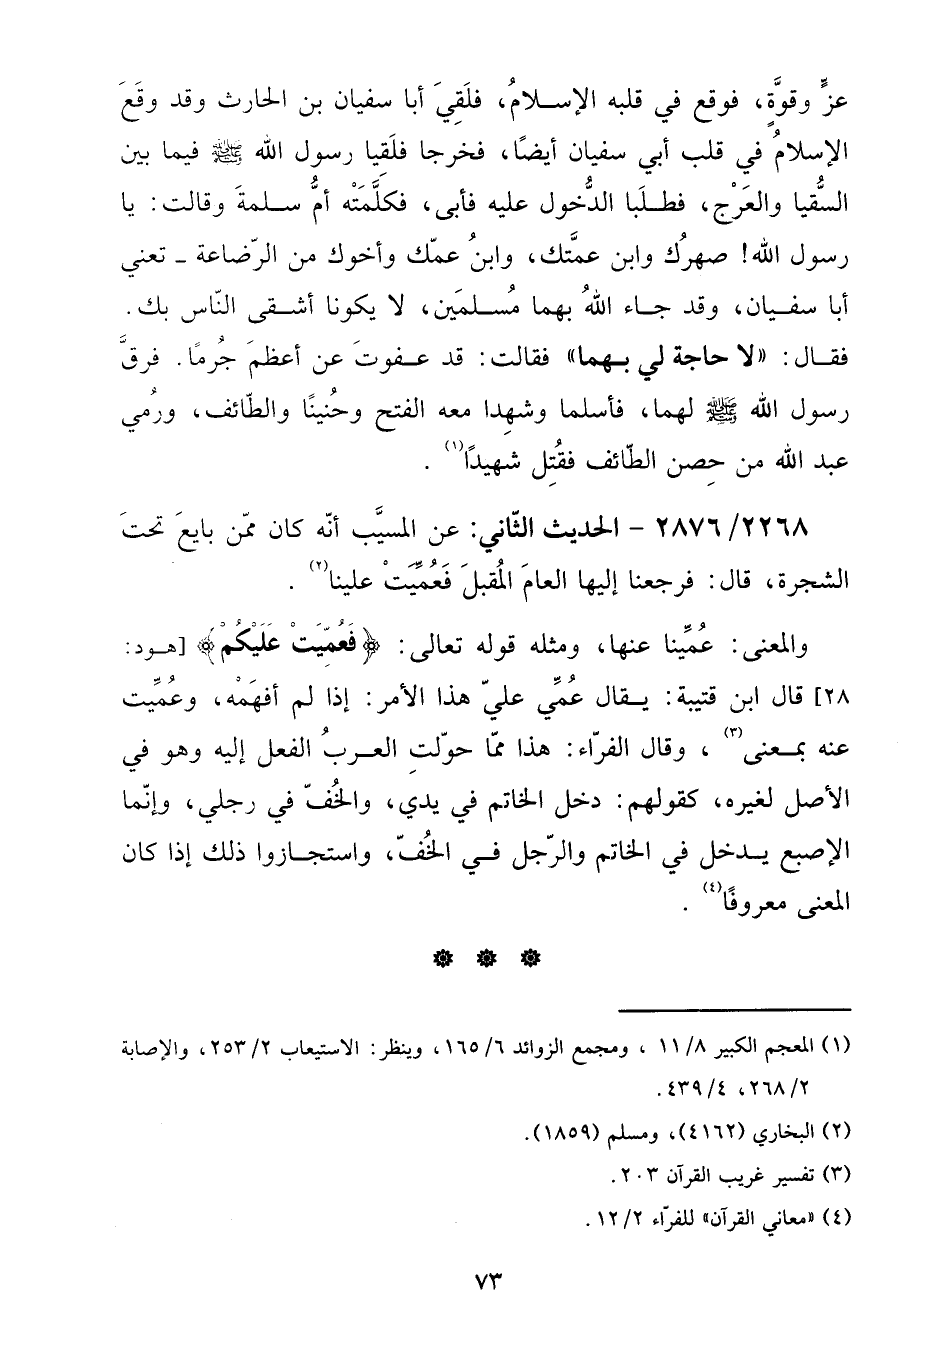 عزٍّ وقوَّةٍ، فوقع في قلبه الإسلامُ، فلَقِيَ أبا سفيان بن الحارث وقد وقَعَ
الإسلامُ في قلب أبي سفيان أيضًا، فخرجا فلَقِيا رسول الله ﷺ فيما بين
السُّقيا والعَرْج، فطلَبا الدُّخول عليه فأبى، فكلَّمَتْه أمُّ سلمةَ وقالت: يا
رسول الله! صهرُك وابن عمَّتك، وابنُ عمّك وأخوك من الرّضاعة ـ تعني
أبا سفيان، وقد جاء اللهُ بهما مُسلمَين، لا يكونا أشقى النّاس بك.
فقال: «لا حاجة لي بهما» فقالت: قد عفوتَ عن أعظمَ جُرمًا. فرقَّ
رسول الله ﷺ لهما، فأسلما وشهِدا معه الفتح وحُنينًا والطّائف، ورُمي
عبد الله من حِصن الطّائف فقُتِل شهيدًا(١) .
٢٢٦٨/ ٢٨٧٦ - الحديث الثّاني: عن المسيَّب أنّه كان ممّن بايعَ تحتَ
الشجرة، قال: فرجعنا إليها العامَ المُقبلَ فَعُمِّيَتْ علينا(٢) .
والمعنى: عُمِّينا عنها، ومثله قوله تعالى: ﴿فَعُمِّيَتْ عَلَيْكُمْ﴾ [هود:
٢٨] قال ابن قتيبة: يقال عُمِّي عليّ هذا الأمر: إذا لم أفهَمْه، وعُمِّيت
عنه بمعنى(٣) ، وقال الفرّاء: هذا ممّا حوّلتِ العربُ الفعل إليه وهو في
الأصل لغيره، كقولهم: دخل الخاتم في يدي، والخُفّ في رجلي، وإنّما
الإصبع يدخل في الخاتم والرّجل في الخُفّ، واستجازوا ذلك إذا كان
المعنى معروفًا(٤) .
(١) المعجم الكبير ٨/ ١١ ، ومجمع الزوائد ٦/ ١٦٥، وينظر: الاستيعاب ٢/ ٢٥٣، والإصابة
٢/ ٢٦٨، ٤/ ٤٣٩.
(٢) البخاري (٤١٦٢)، ومسلم (١٨٥٩).
(٣) تفسير غريب القرآن ٢٠٣.
(٤) «معاني القرآن» للفرّاء ٢/ ١٢.
٧٣